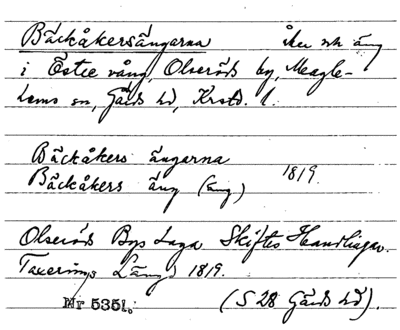 Bäckåkersängarna åker och äng
i Östre vång, Olseröds by, Magle-
hems sn, Gärds hd, Krstd. l.
Bäckåkers ängarna
Bäckåkers äng (äng) 1819.
Olseröds Bys Laga Skiftes Handlingar.
Taxerings Längd 1819.
Nr 5351. (S 28 Gärds hd).